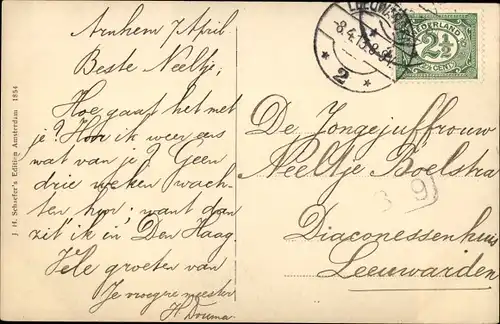 Arnhem 7 April
Beste Neeltje,
Hoe gaat het met
je? Hoor ik weer eens
wat van je? Geen
drie weken wach-
ten hoor; want dan
zit ik in Den Haag.
Vele groeten van
Je vroegre meester
H Douma
J. H. Schaefer's Edition Amsterdam 1854
LEEUWARDEN
8.4.1
2
NEDERLAND
2½
CENT
De Jongejuffrouw
Neeltje Boelstra
Diaconessenhuis
Leeuwarden
9